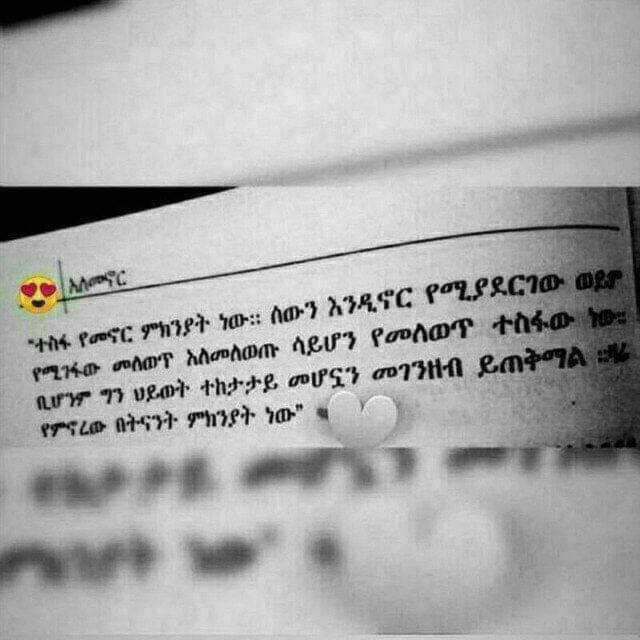 አለመኖር
"ተስፋ የመኖር ምክንያት ነው። ሰውን እንዲኖር የሚያደርገው ወደሞ
የሚገፋው መለወጥ አለመለወጡ ሳይሆን የመለወጥ ተስፋው ነው።
ቢሆንም ግን ህይወት ተከታታይ መሆኗን መገንዘብ ይጠቅማል ።ዛሬ
የምኖረው በትናንት ምክንያት ነው"